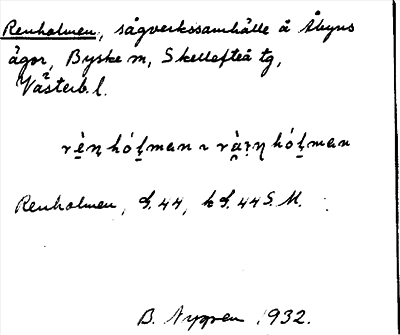 Renholmen, sågverkssamhälle å Åbyns
ägor, Byske sn, Skellefteå tg,
Västerb. l.
Renholmen, S. 44, ks. 44 S. M.
B. Nygren 1932.